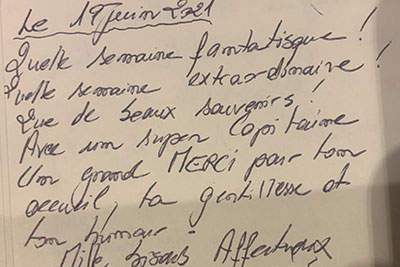 Le 19 juin 2021
Quelle semaine fantastique !
Quelle semaine extraordinaire !
Que de beaux souvenirs !
Avec un super Capitaine
Un grand MERCI pour ton
accueil, ta gentillesse et
ton humour
Mille bisous Affectueux